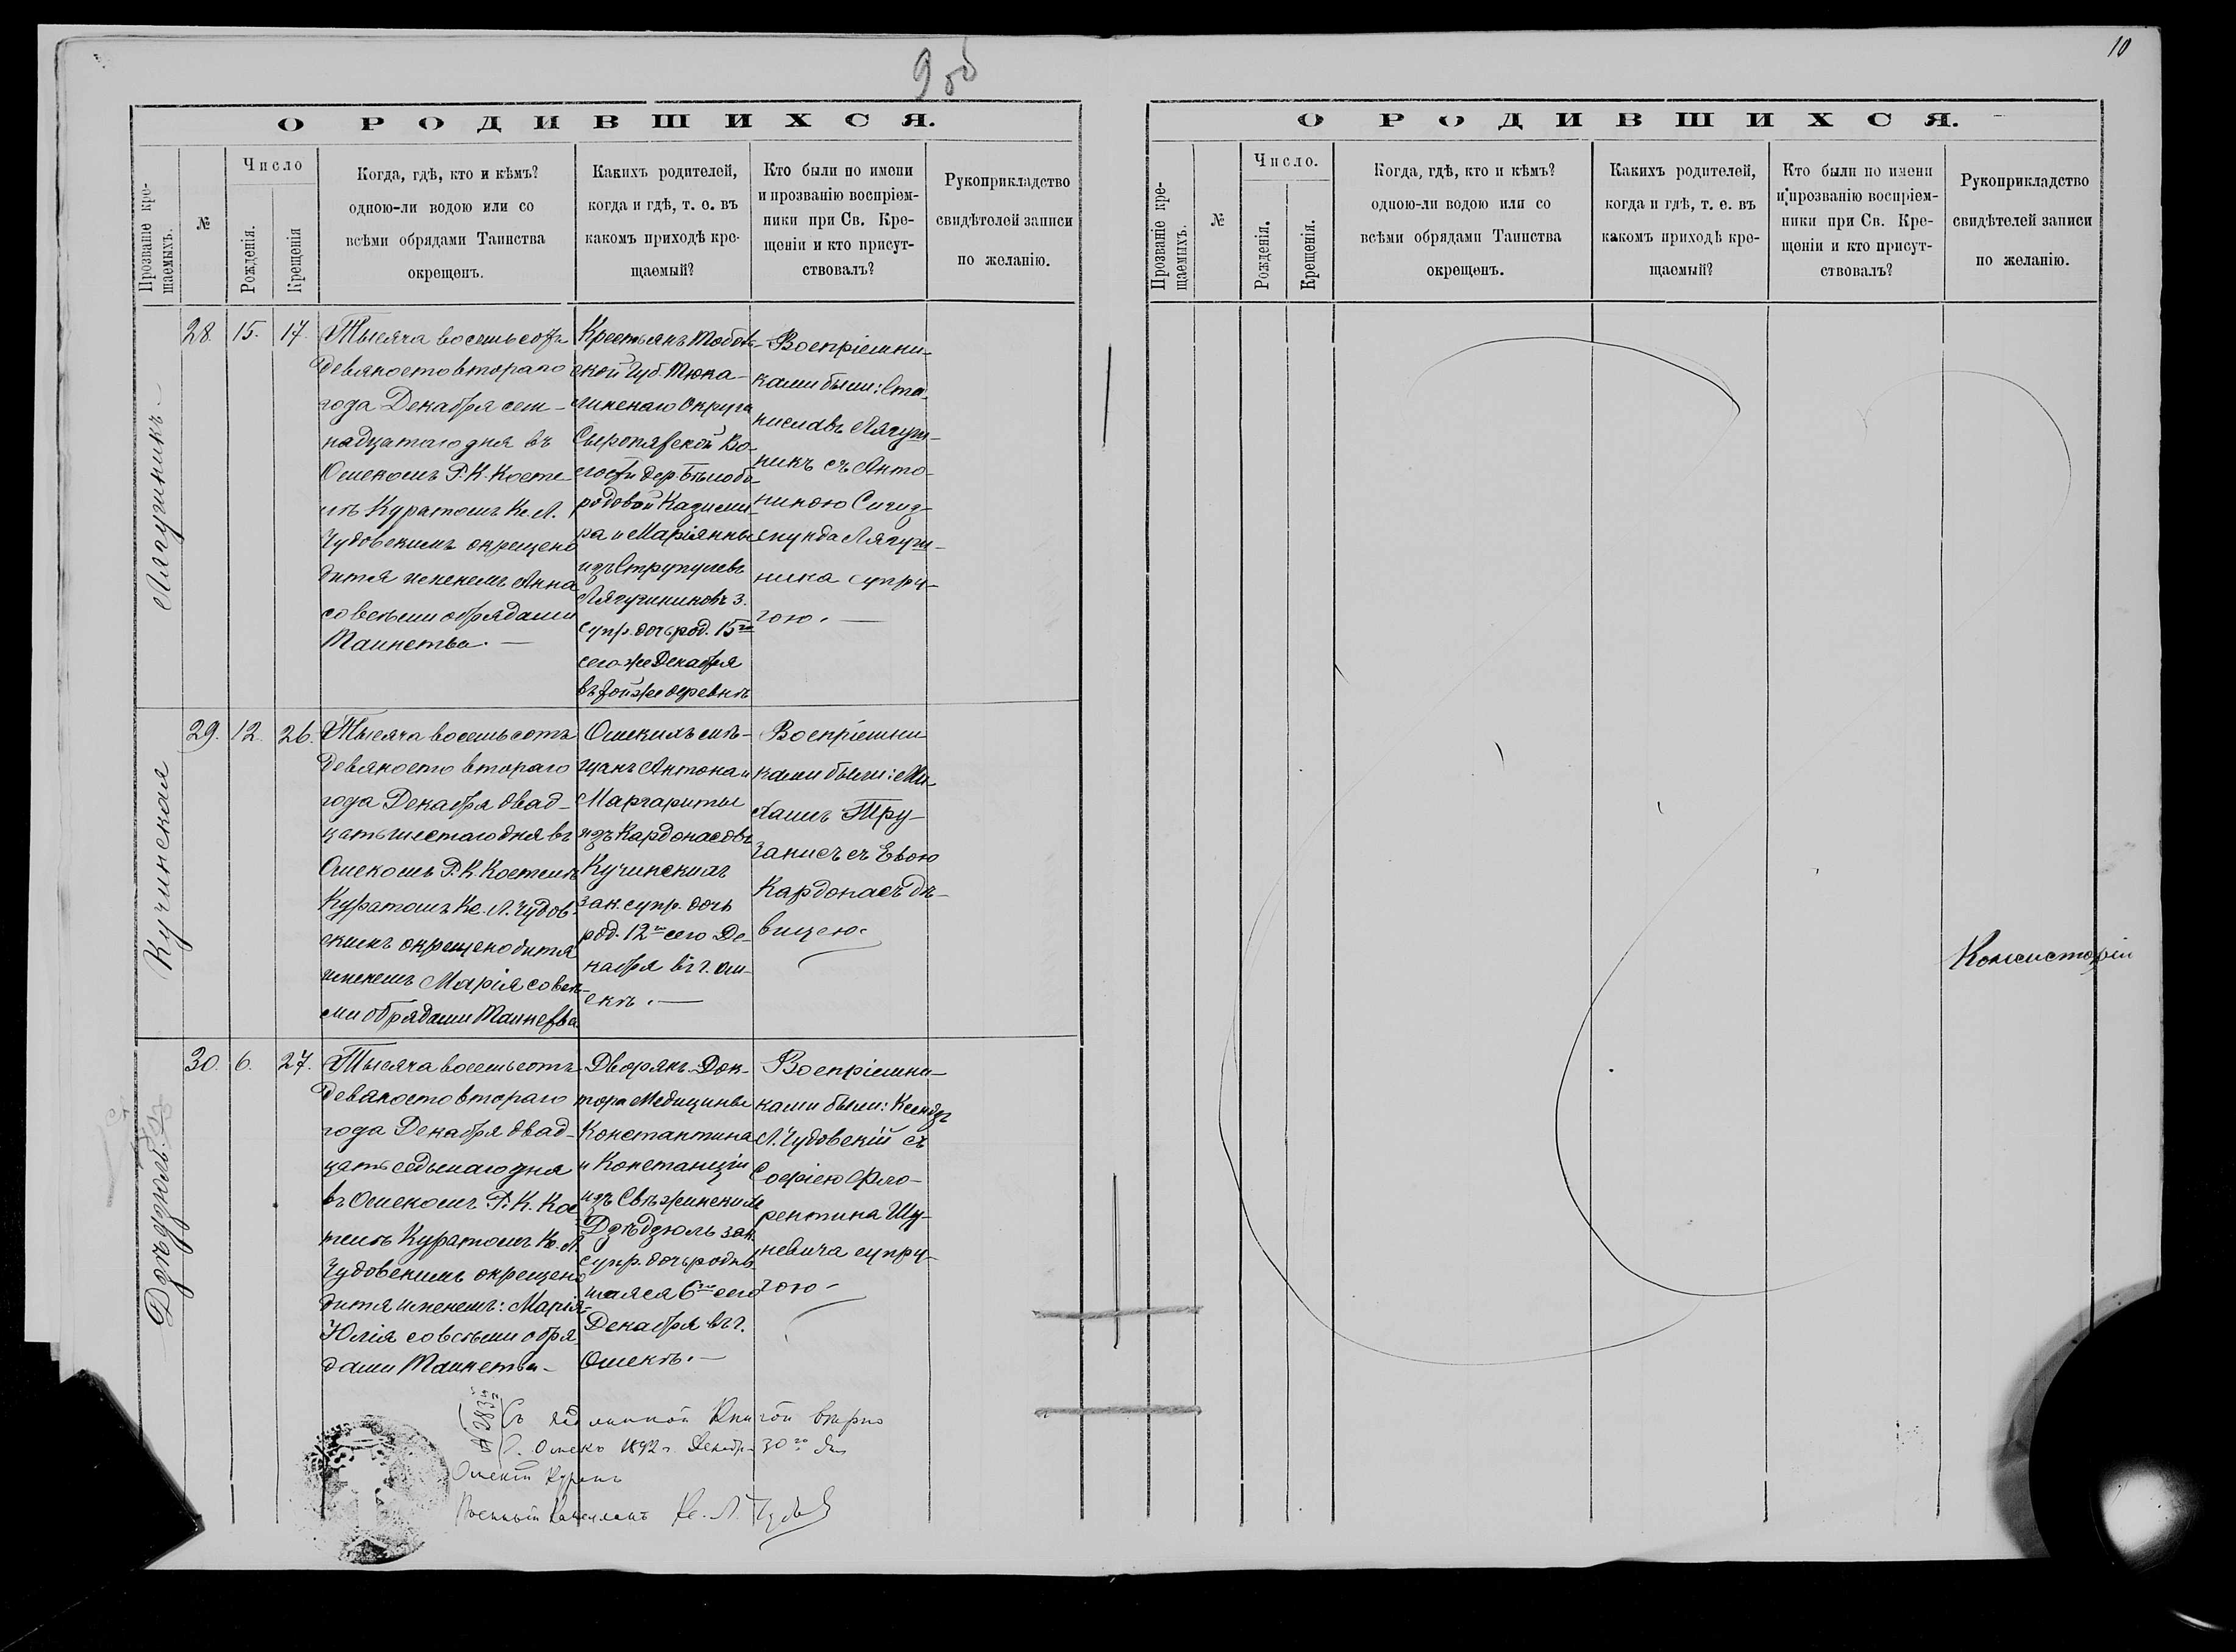 9 об
10
О РОДИВШИХСЯ.
Прозваніе кре-
щаемыхъ.
№
Число
Рожденія.
Крещенія
Когда, гдѣ, кто и кѣмъ?
одною-ли водою или со
всѣми обрядами Таинства
окрещенъ.
Какихъ родителей,
когда и гдѣ, т. е. въ
какомъ приходѣ кре-
щаемый?
Кто были по имени
и прозванію воспріем-
ники при Св. Кре-
щеніи и кто присут-
ствовалъ?
Рукоприкладство
свидѣтелей записи
по желанію.
Лягушникъ
28. 15. 17.
Тысяча восемьсотъ
девяносто втораго
года Декабря сем-
надцатаго дня въ
Омскомъ Р. К. Косте-
лѣ Куратомъ Кс. Л.
Чудовскимъ окрещено
дитя именемъ Анна
со всѣми обрядами
Таинства. —
Крестьянъ Тоболь-
ской Губ. Тюка-
линскаго Округа
Сыропятской Во-
лости дер. Бѣлобо-
родовой Казими-
ра и Маріянны
изъ Струпулевъ
Лягушниковъ з.
супр. дочь род. 15го
сего же Декабря
въ той же деревнѣ
Воспріемни-
ками были: Ста-
ниславъ Лягуш-
никъ съ Анто-
ниною Сигиз-
мунда Лягуш-
ника супру-
гою. —
Кучинская
29. 12. 26.
Тысяча восемьсотъ
девяносто втораго
года Декабря двад-
цать шестаго дня въ
Омскомъ Р. К. Костелѣ
Куратомъ Кс. Л. Чудов-
скимъ окрещено дитя
именемъ Марія со всѣ-
ми обрядами Таинства
Омскихъ мѣ-
щанъ Антона и
Маргариты
изъ Кардонасовъ
Кучинскихъ
зак. супр. дочь
род. 12го сего Де-
кабря въ г. Ом-
скѣ. —
Воспріемни-
ками были: Ми-
хаилъ Тру-
ханисъ съ Евою
Кардонасъ дѣ-
вицею.
Дзѣдзюль
30. 6. 27.
Тысяча восемьсотъ
девяносто втораго
года Декабря двад-
цать седьмаго дня
въ Омскомъ Р. К. Кос-
телѣ Куратомъ Кс. Л.
Чудовскимъ окрещено
дитя именемъ: Марія-
Юлія со всѣми обря-
дами Таинства —
Дворянъ Док-
тора Медицины
Константина
и Констанціи
изъ Свѣжинскихъ
Дзѣдзюль зак.
супр. дочь родив-
шаяся 6го сего
Декабря въ г.
Омскѣ. —
Воспріемни-
ками были: Ксендзъ
Л. Чудовскій съ
Софіею Фло-
рентина Шу-
невича супру-
гою —
№ 283
Съ подлинной Книгой вѣрно
Г. Омскъ 1892 г. Декабря 30го дня
Омскій Куратъ
Военный Капелланъ Кс. Л. Чудовскій
О РОДИВШИХСЯ.
Прозваніе кре-
щаемыхъ.
№
Число.
Рожденія.
Крещенія.
Когда, гдѣ, кто и кѣмъ?
одною-ли водою или со
всѣми обрядами Таинства
окрещенъ.
Какихъ родителей,
когда и гдѣ, т. е. въ
какомъ приходѣ кре-
щаемый?
Кто были по имени
и прозванію воспріем-
ники при Св. Кре-
щеніи и кто присут-
ствовалъ?
Рукоприкладство
свидѣтелей записи
по желанію.
Консисторіи